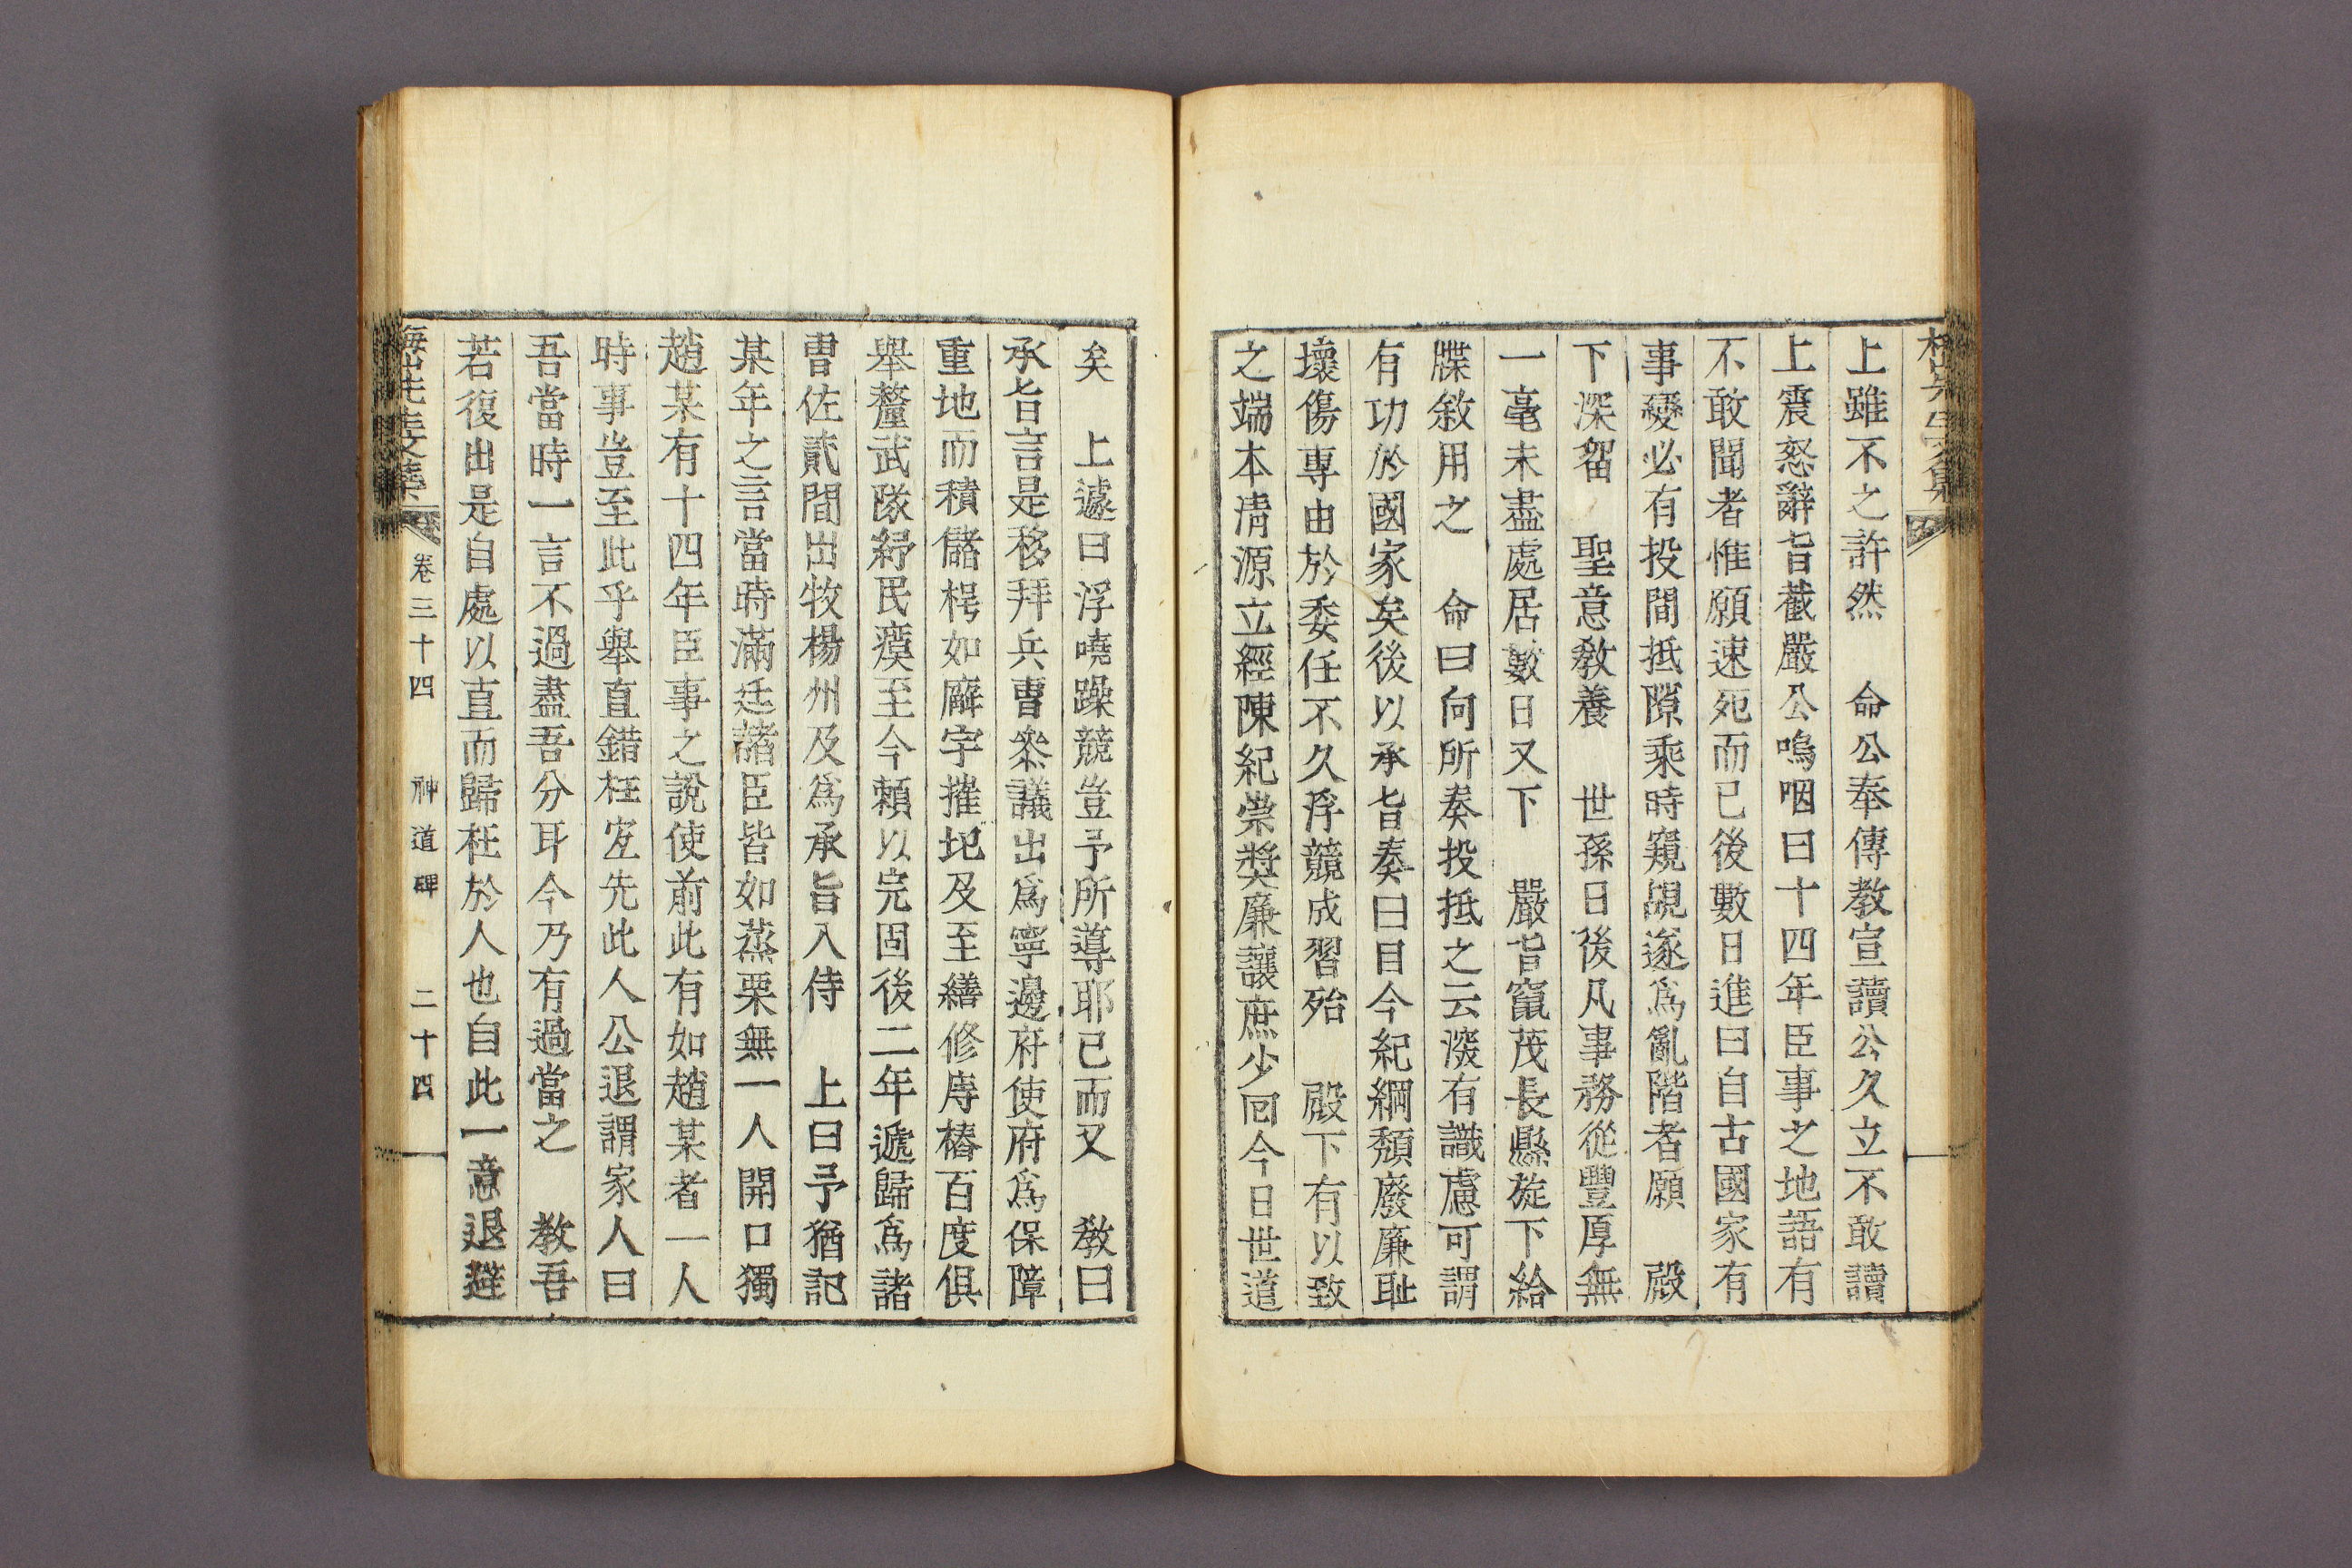 上雖不之許然　命公奉傳教宣讀公久立不敢讀
上震怒辭旨截嚴公嗚咽曰十四年臣事之地語有
不敢聞者惟願速死而已後數日進曰自古國家有
事變必有投間抵隙乘時窺覘遂爲亂階者願　殿
下深留　聖意教養　世孫日後凡事務從豐厚無
一毫未盡處居數日又下　嚴旨竄茂長縣旋下給
牒敘用之　命曰向所奏投抵之云深有識慮可謂
有功於國家矣後以承旨奏曰目今紀綱頹廢廉耻
壞傷專由於委任不久浮競成習殆　殿下有以致
之端本淸源立經陳紀崇奬廉讓庶少回今日世道
矣　上遽曰浮嘵躁競豈予所導耶已而又　教曰
承旨言是移拜兵曹叅議出爲寧邊府使府爲保障
重地而積儲枵如廨宇摧圯及至繕修庤樁百度俱
舉釐武隊紓民瘼至今賴以完固後二年遞歸爲諸
曹佐貳間出牧楊州及爲承旨入侍　上曰予猶記
某年之言當時滿廷諸臣皆如蒸栗無一人開口獨
趙某有十四年臣事之說使前此有如趙某者一人
時事豈至此乎舉直錯枉宐先此人公退謂家人曰
吾當時一言不過盡吾分耳今乃有過當之　教吾
若復出是自處以直而歸枉於人也自此一意退避
卷三十四　神道碑　二十四